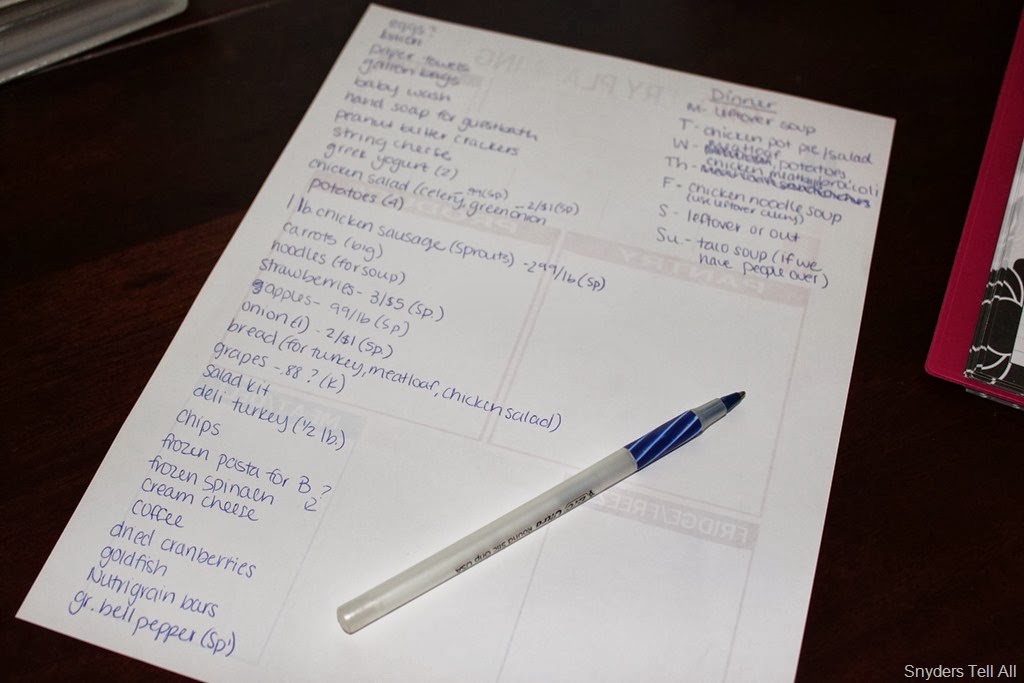 eggs?
paper towels
gallon bags
baby wash
hand soap for guest bath
peanut butter crackers
string cheese
greek yogurt (2)
chicken salad (celery, green onion
.99 (Sp) - 2/$1 (Sp)
potatoes (4)
1 lb chicken sausage (sprouts) - 2.99/lb (Sp)
carrots (big)
noodles (for soup)
strawberries - 3/$5 (Sp.)
apples - 99/lb (Sp)
onion (1) - 2/$1 (Sp.)
bread (for turkey, meatloaf, chicken salad)
grapes - .88? (K)
salad kit
deli turkey (1/2 lb.)
chips
frozen pasta for B?
frozen spinach 2
cream cheese
coffee
dried cranberries
goldfish
Nutrigrain bars
gr. bell pepper (Sp)
Dinner
M - leftover soup
T - chicken pot pie/salad
W - meatloaf, potatoes
Th - chicken broccoli
F - chicken noodle soup
(use leftover celery)
S - leftover or out
Su - taco soup (if we
have people over)
PANTRY
FRIDGE/FREEZ
Round Stic Grip USA
Snyders Tell All